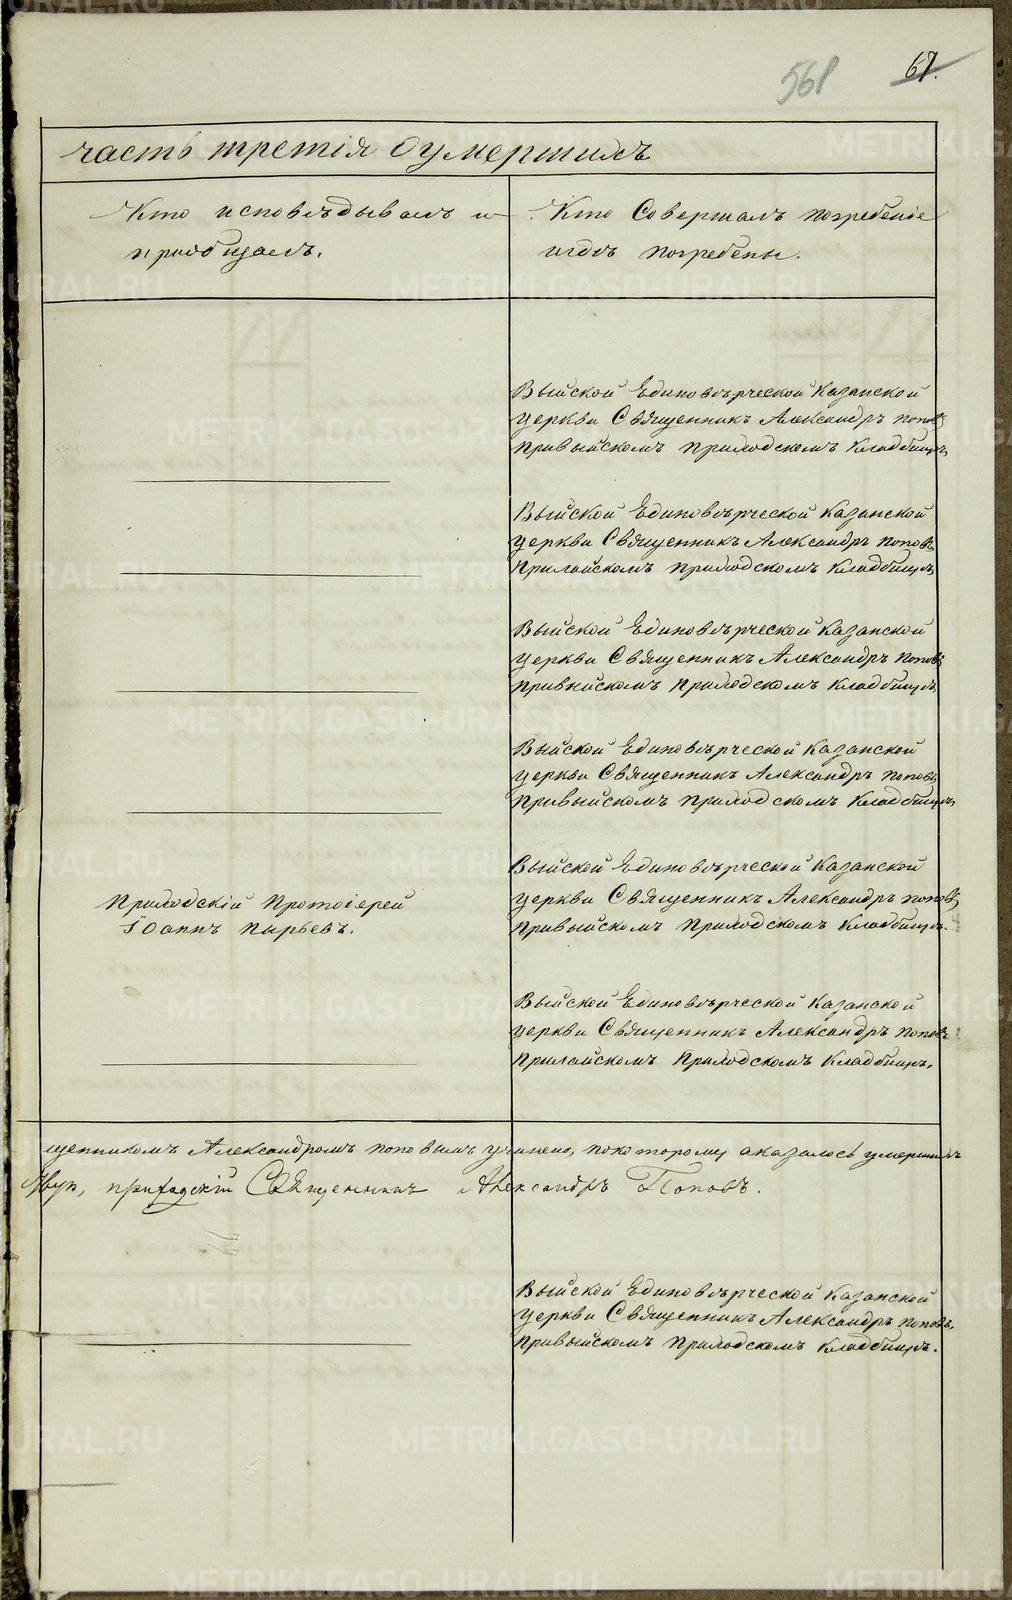 561
67.
часть третія о умершихъ
Кто исповѣдывалъ и
приобщалъ.
Кто Совершалъ погребеніе
игдѣ погребены.
Выйской Единовѣрческой Казанской
церкви Священникъ Александръ поповъ
привыйскомъ приходскомъ кладбищѣ,
Выйской Единовѣрческой Казанской
церкви Священникъ Александръ поповъ,
приходскомъ кладбищѣ,
Выйской Единовѣрческой Казанской
церкви Священникъ Александръ поповъ,
привыйскомъ приходскомъ кладбищѣ,
Выйской Единовѣрческой Казанской
церкви Священникъ Александръ поповъ,
привыйскомъ приходскомъ кладбищѣ,
Приходскій Протоіерей
Іоаннъ Пырьевъ.
Выйской Единовѣрческой Казанской
церкви Священникъ Александръ поповъ,
привыйскомъ приходскомъ кладбищѣ.
Выйской Единовѣрческой Казанской
церкви Священникъ Александръ поповъ
приходскомъ кладбищѣ.
щенникомъ Александромъ поповымъ учинено, покоторому оказалось умершихъ
приходскій Священникъ Александръ Поповъ.
Выйской Единовѣрческой Казанской
церкви Священникъ Александръ поповъ,
привыйскомъ приходскомъ кладбищѣ.
METRIKI.GASO-URAL.RU